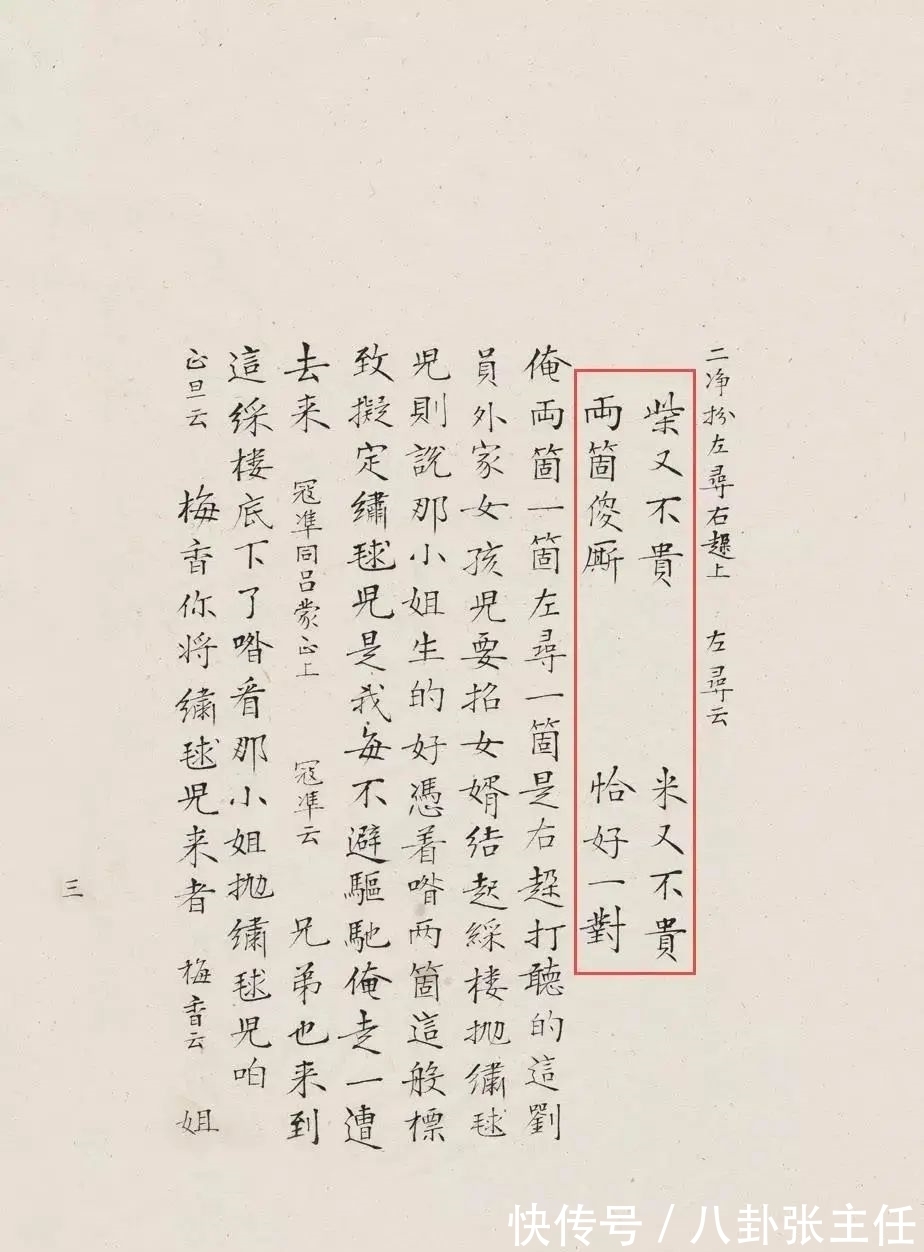 二净扮左尋右趓上 左尋云
柴又不貴 米又不貴
両箇傻厮 恰好一對
俺両箇一箇左尋一箇是右趓打聽的這劉
員外家女孩児要招女婿结起綵楼抛繡毬
児則說那小姐生的好憑着喒两箇這般標
致擬定繡毬児是我每不避驅馳俺走一遭
去来 冦準同吕蒙正上 冦準云 兄弟也来到
這綵楼底下了喒看那小姐抛繡毬児咱
正旦云 梅香你将繡毬児来者 梅香云 姐
三
快传号/八卦张主任